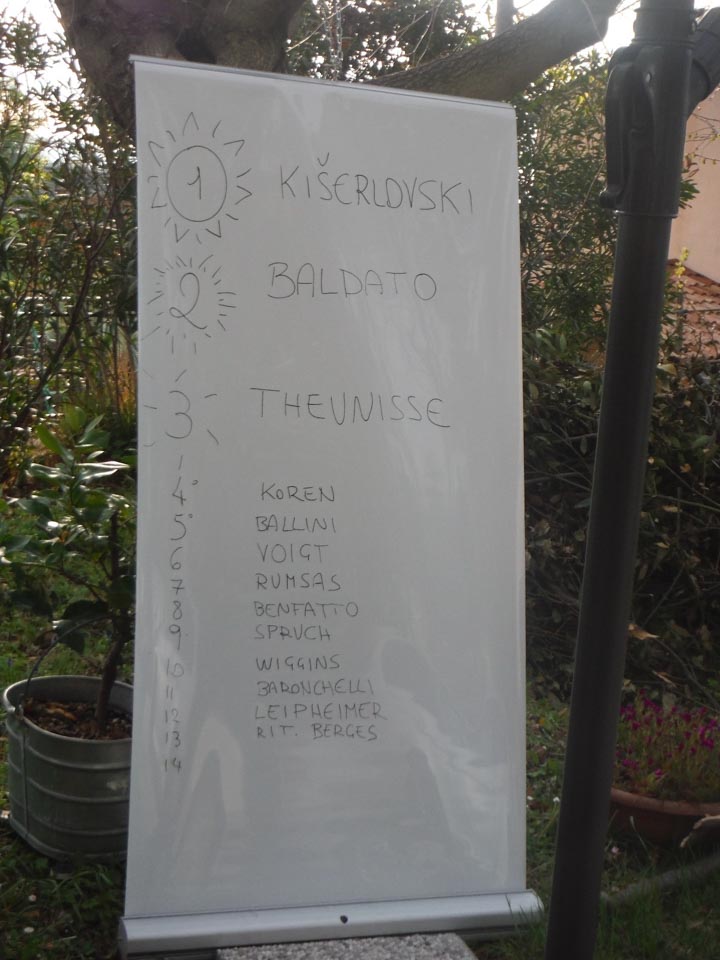 1 KIŠERLOVSKI
2 BALDATO
3 THEUNISSE
4° KOREN
5° BALLINI
6 VOIGT
7 RUMSAS
8 BENFATTO
9 SPRUCH
10 WIGGINS
11 BARONCHELLI
12 LEIPHEIMER
13 RIT. BERGES
14